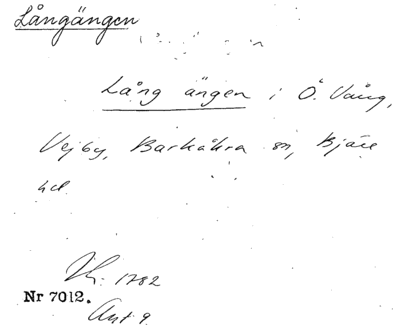 Långängen
Lång ängen i Ö. Vång,
Vejby, Barkåkra sn, Bjäre
hd
1782
Nr 7012.
Akt 9.